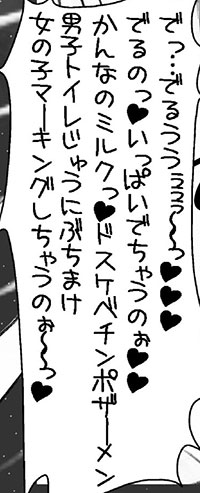 でっ‥でるうううぅぅぅ～～っ♥♥♥
でるのっ♥いっぱいでちゃうのぉ♥♥
かんなのミルクっ♥ドスケベチンポザーメン
男子トイレじゅうにぶちまけ
女の子マーキングしちゃうのぉ～～っ♥